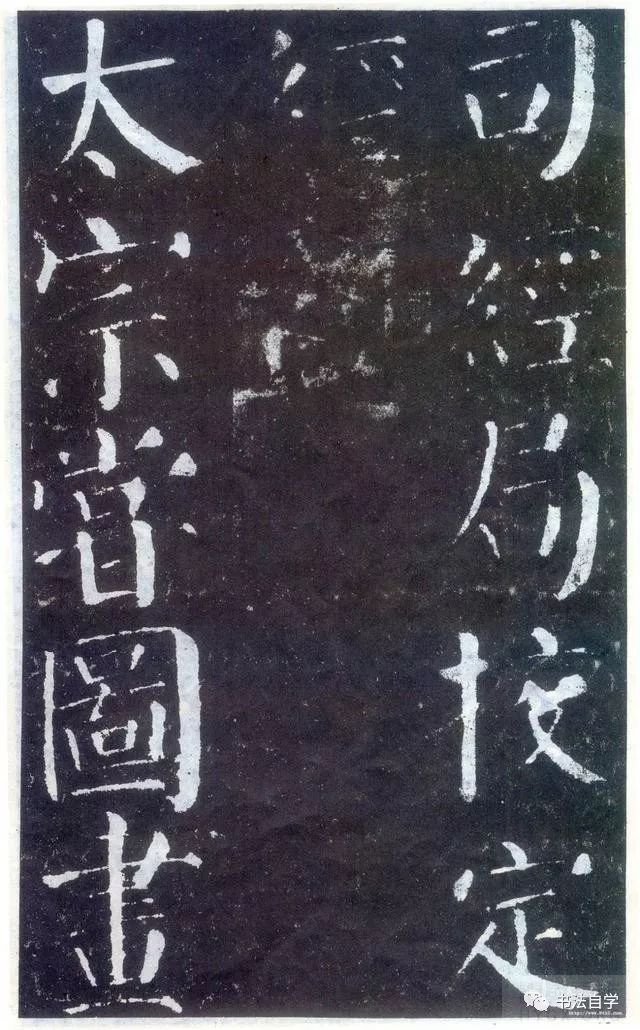 司經局校定
經
太宗嘗圖畫
书法自学